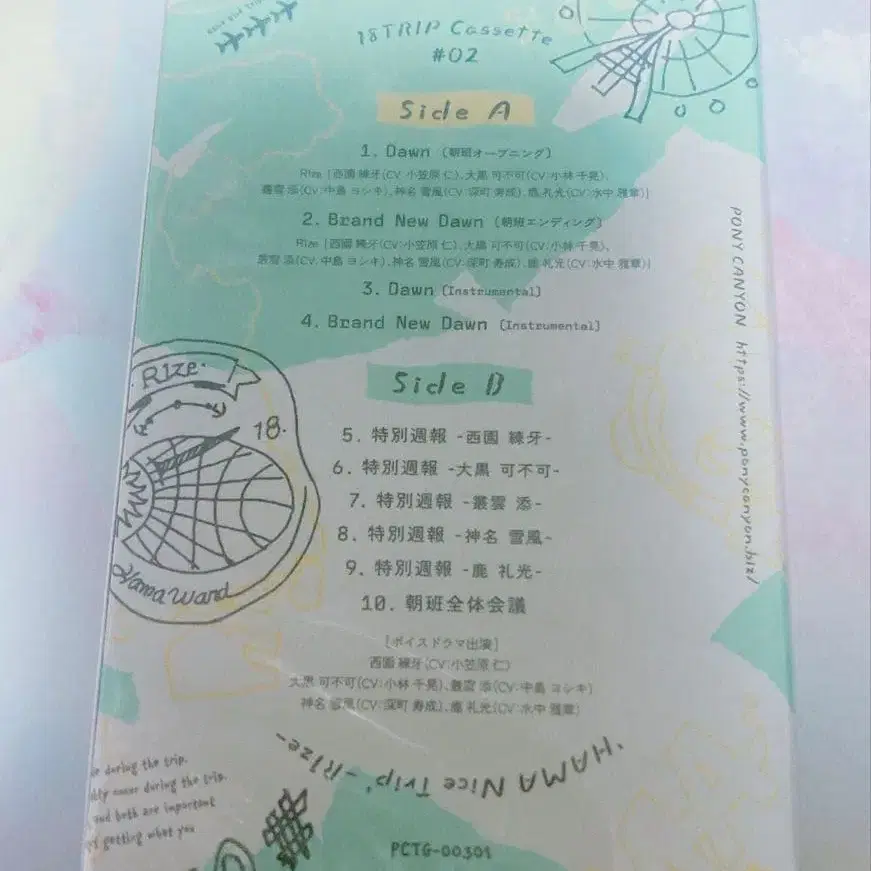 18TRIP Cassette
#02
Side A
1. Dawn [朝班オープニング]
R1ze [西園 練牙(CV:小笠原 仁)、大黒 可不可(CV:小林 千晃)、
叢雲 添(CV:中島 ヨシキ)、神名 雪風(CV:深町 寿成)、鹿 礼光(CV:水中 雅章)]
2. Brand New Dawn [朝班エンディング]
R1ze [西園 練牙(CV:小笠原 仁)、大黒 可不可(CV:小林 千晃)、
叢雲 添(CV:中島 ヨシキ)、神名 雪風(CV:深町 寿成)、鹿 礼光(CV:水中 雅章)]
3. Dawn [Instrumental]
4. Brand New Dawn [Instrumental]
Side B
5. 特別週報 -西園 練牙-
6. 特別週報 -大黒 可不可-
7. 特別週報 -叢雲 添-
8. 特別週報 -神名 雪風-
9. 特別週報 -鹿 礼光-
10. 朝班全体会議
[ボイスドラマ出演]
西園 練牙(CV:小笠原 仁)
大黒 可不可(CV:小林 千晃)、叢雲 添(CV:中島 ヨシキ)
神名 雪風(CV:深町 寿成)、鹿 礼光(CV:水中 雅章)
PONY CANYON https://www.ponycanyon.biz/
R1ze
18
Hama Ward
"HAMA Nice Trip" -R1ze-
during the trip.
occur during the trip.
and both are important
getting what you
PCTG-00301